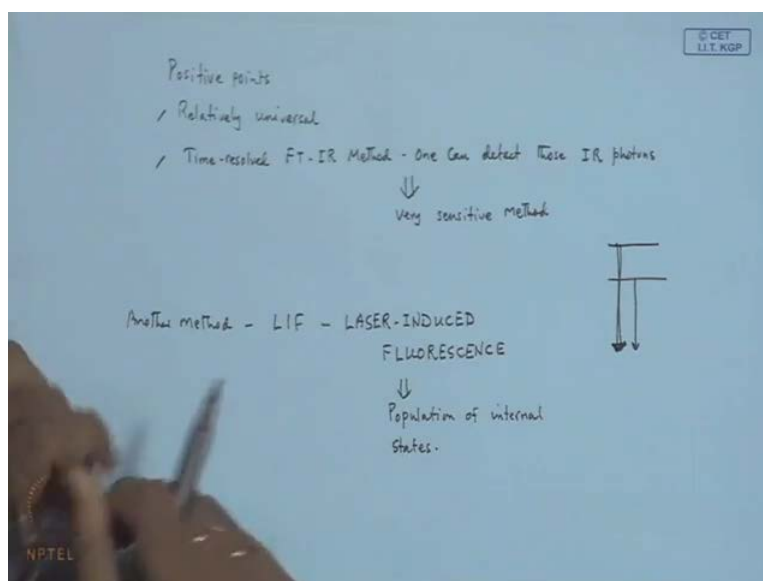 © CET
I.I.T. KGP
Positive points
Relatively universal
Time-resolved FT-IR Method - One Can detect those IR photons
⇓
Very sensitive method
Another method - LIF - LASER-INDUCED
FLUORESCENCE
⇓
Population of internal
states.
NPTEL